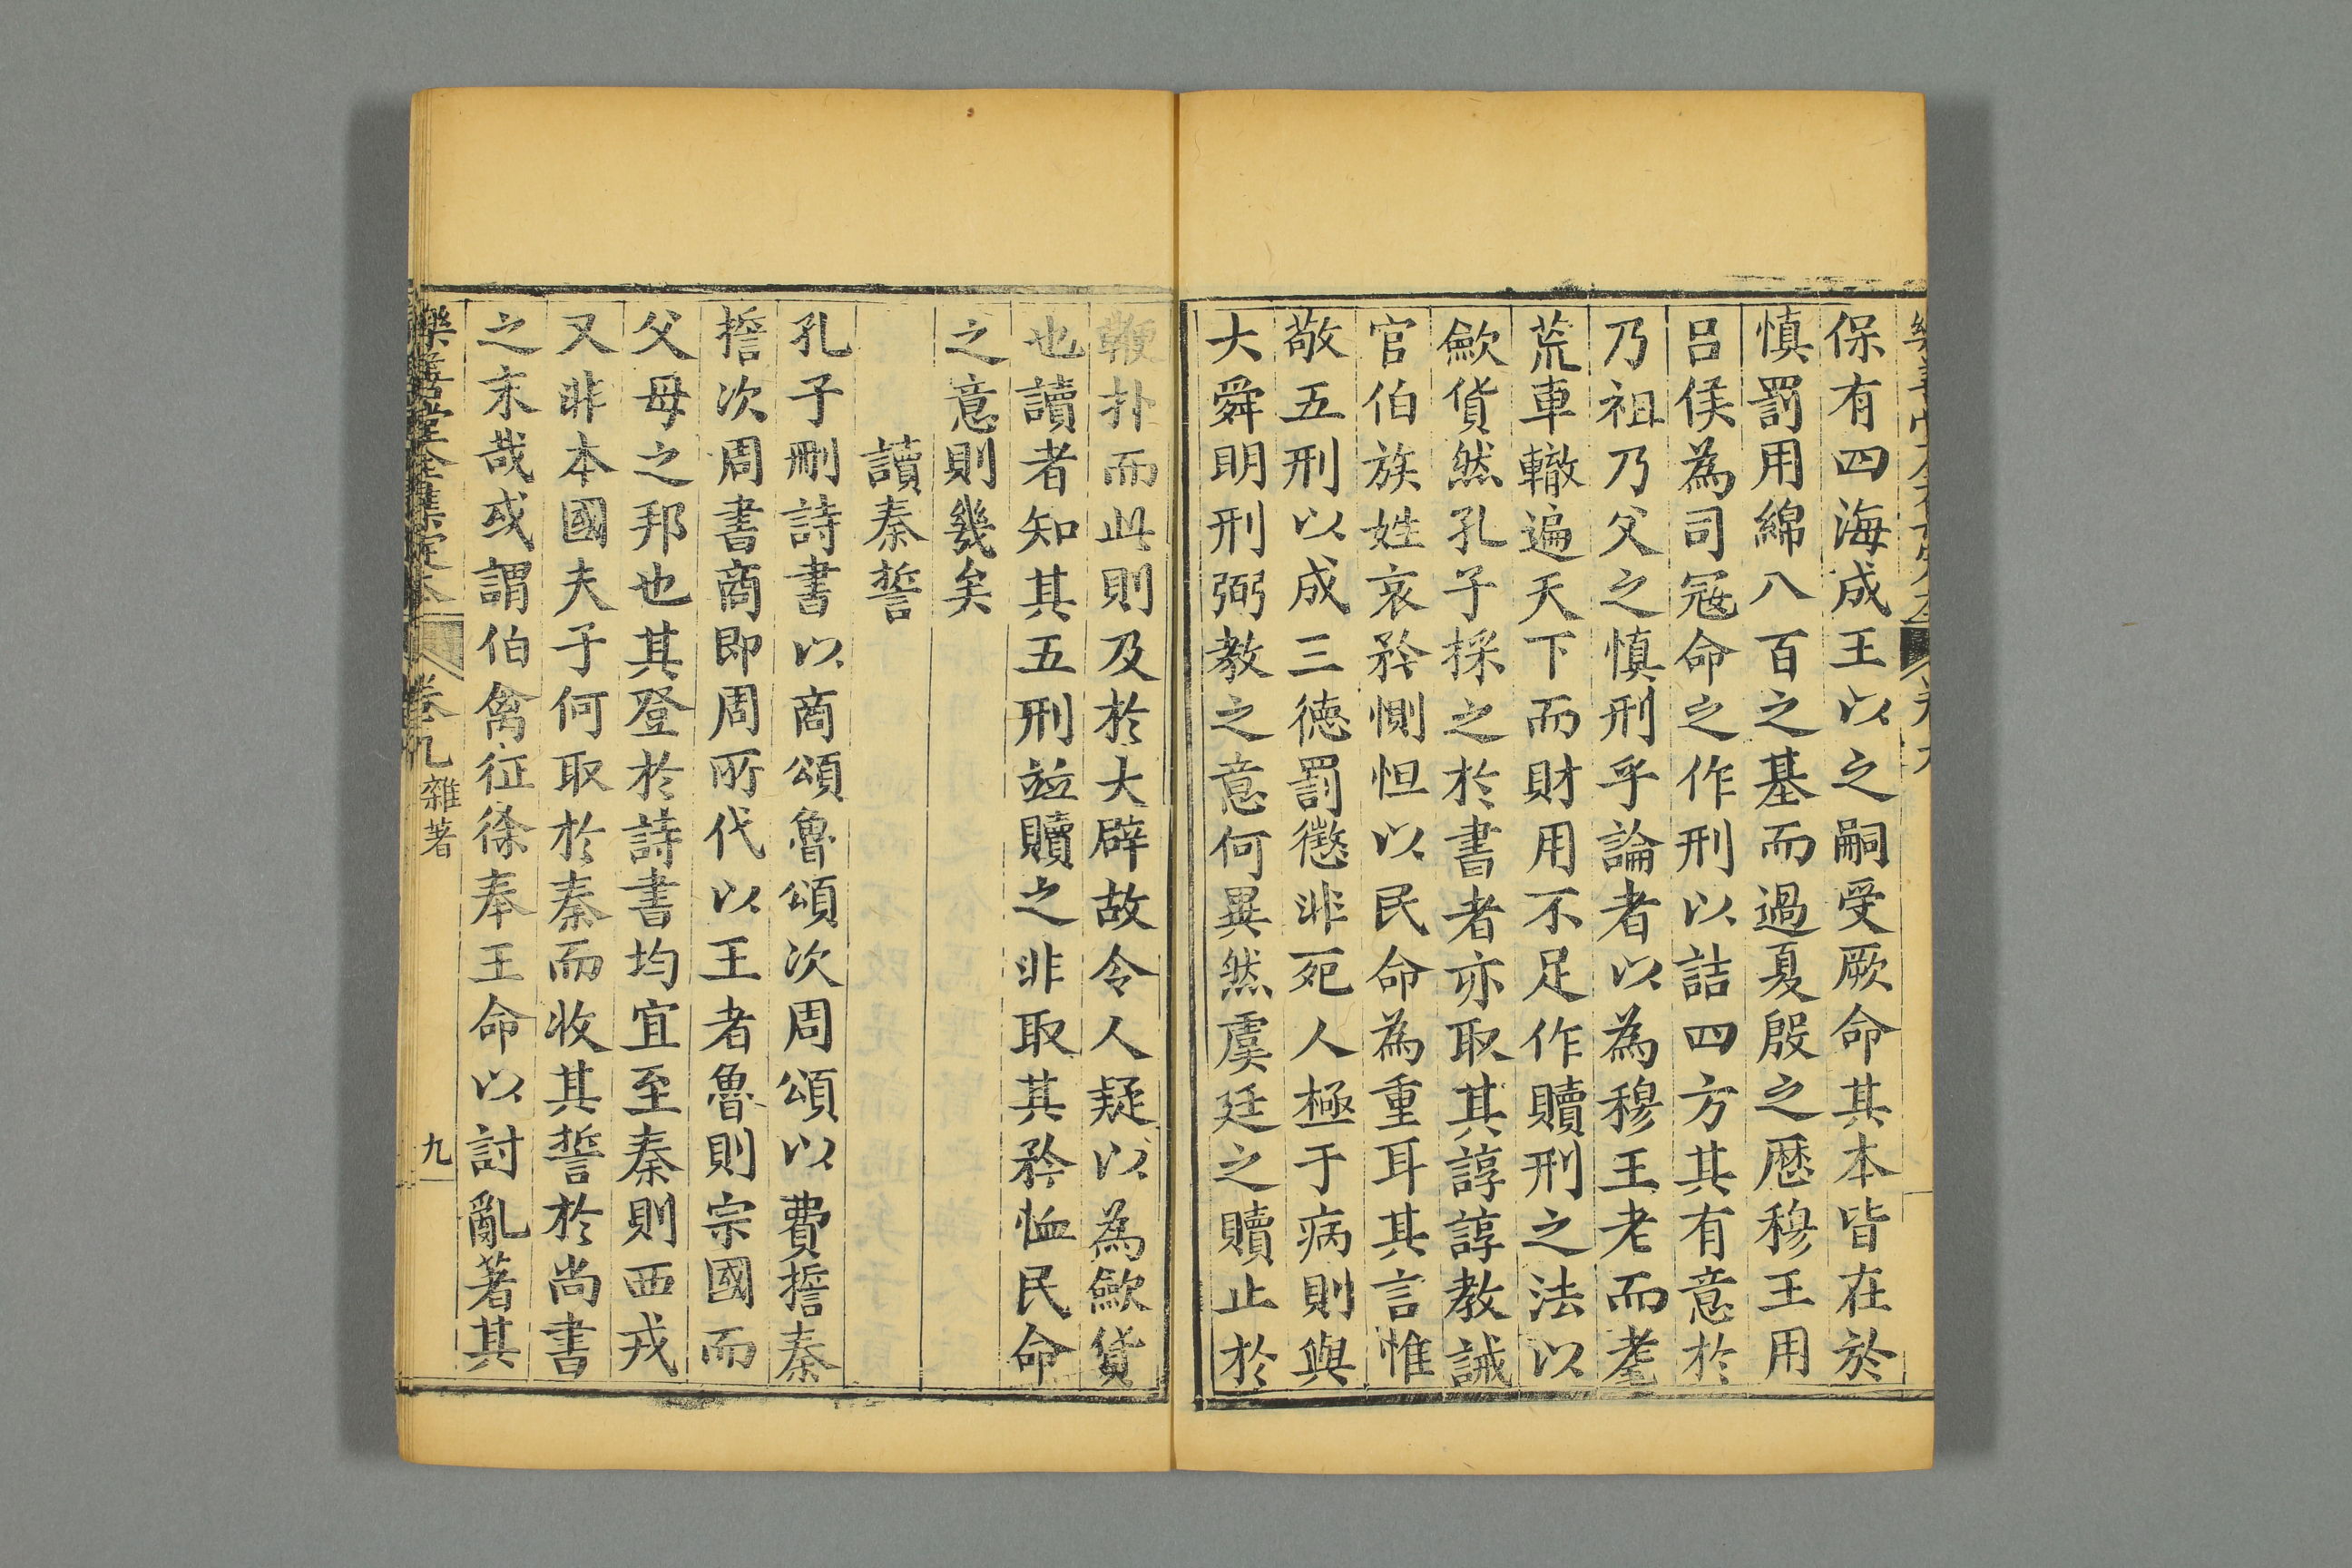 保有四海成王以之嗣受厥命其本皆在於
慎罰用綿八百之基而過夏殷之歷穆王用
呂侯為司寇命之作刑以詰四方其有意於
乃祖乃父之慎刑乎論者以為穆王老而耄
荒車轍遍天下而財用不足作贖刑之法以
歛貨然孔子採之於書者亦取其諄諄教誡
官伯族姓哀矜惻怛以民命為重耳其言惟
敬五刑以成三德罰懲非死人極于病則與
大舜明刑弼教之意何異然虞廷之贖止於
鞭扑而此則及於大辟故令人疑以為歛貨
也讀者知其五刑並贖之非取其矜恤民命
之意則幾矣
讀秦誓
孔子刪詩書以商頌魯頌次周頌以費誓秦
誓次周書商即周所代以王者魯則宗國而
父母之邦也其登於詩書均宜至秦則西戎
又非本國夫子何取於秦而收其誓於尚書
之末哉或謂伯禽征徐奉王命以討亂著其
樂善堂全集定本 卷九 雜著 九